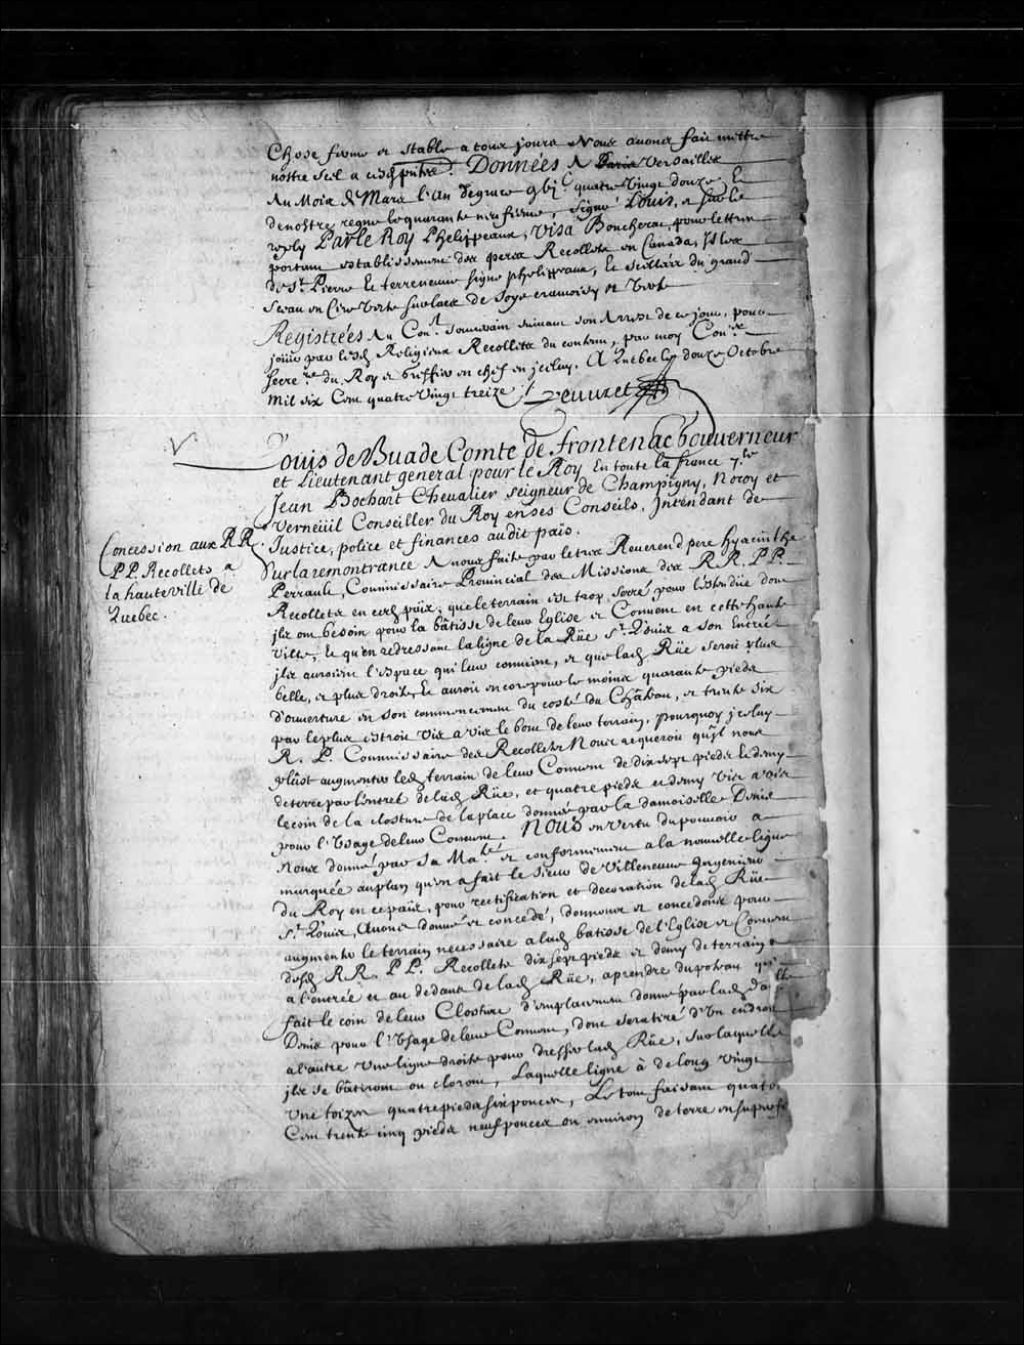 Chose ferme et stable a tous jours Nous auons fait mettre
nostre Scel a cesd. pntes. Données A Paris Versailles
Au Mois de Mars l'an de grace gbic quatre Vingt douze, Et
de nostre regne le quarante neufiesme, Signé Louis, et sur le
reply Par le Roy Phelippeaux, Visa Boucherat, pour lettres
portant establissement des peres Recollets en Canada, Isles
de St. Pierre et terreneuue signé phelippeaux, Et scellées du grand
Sceau en Cire Verte sur lacs de Soye cramoisy et Verte
Registrées Au Conl. Souuerain suiuant son Arrest de ce jour, pour
jouir par lesd. Religieux Recollets du contenu, par moy Coner.
Secre.re du Roy et Greffier en chef en jceluy, A Quebec le douze Octobre
Mil six Cens quatre Vingt treize ./. Peuuret
Louis de Buade Comte de Frontenac Gouuerneur
et Lieutenant general pour le Roy En toute la france 7.le
Jean Bochart Cheualier Seigneur de Champigny, Noroy et
Verneüil Conseiller du Roy en ses Conseils, Intendant de
Justice, police et finances audit païs.
Concession aux R.R.
P.P. Recollets a
la haute ville de
Quebec.
Sur la remontrance A nous faite par le tres Reuerend pere Hyacinthe
Perrault, Commissaire Prouincial des Missions des R.R. P.P.
Recollets en ced. païs, que le terrain est trop serré pour l'estendüe dont
jls ont besoin pour la bâtisse de leur Eglise et Conuent en cette haute
Ville, Et qu'en redressant la ligne de la Rüe St. Loüis a son Entrée
jls auroient l'espace qui leur conuient, et que lad. Rüe seroit plus
belle, et plus droite, Et auroit encore pour le moins quarante pieds
d'ouuerture en son commencement du costé du Château, et trente six
par le plus estroit Vis a Vis le bout de leur terrain, pourquoy jceluy
R. P. Commissaire des Recollets Nous requeroit qu'jl nous
plust augmenter led. terrain de leur Conuent de dix sept pieds Et demy
de terre par l'entrée de lad. Rüe, et quatre pieds et demy Vis a Vis
le coin de la closture de la place donnée par la damoiselle Denis
pour l'Vsage de leur Conuent. NOUS en Vertu du pouuoir a
Nous donné par Sa Ma.té et conformement a la nouuelle ligne
marquée au plan qu'en a fait le Sieur de Villeneuue Ingenieur
du Roy en ce païs, pour rectification et decoration de lad. Rüe
St. Loüis, Auons donné et concedé, donnons et concedons pour
augmenter le terrain necessaire a lad. batisse de l'Eglise et Conuent
desd. R.R. P.P. Recollets dix sept pieds et demy de terrain
a l'entrée et au dedans de lad. Rüe, a prendre du poteau qui
fait le coin de leur Closture d'emplacement donné par lad. Da.lle
Denis pour l'Vsage de leur Conuent, dont sera tiré d'Vn endroit
a l'autre Vne ligne droite pour dresser lad. Rüe, sur laquelle
jls se bâtiront ou cloront, Laquelle ligne à de long Vingt
Vne toizes quatre pieds six pouces, Le tout faisant quatre
Cent trente cinq pieds neuf pouces ou enuiron de terre en superfi